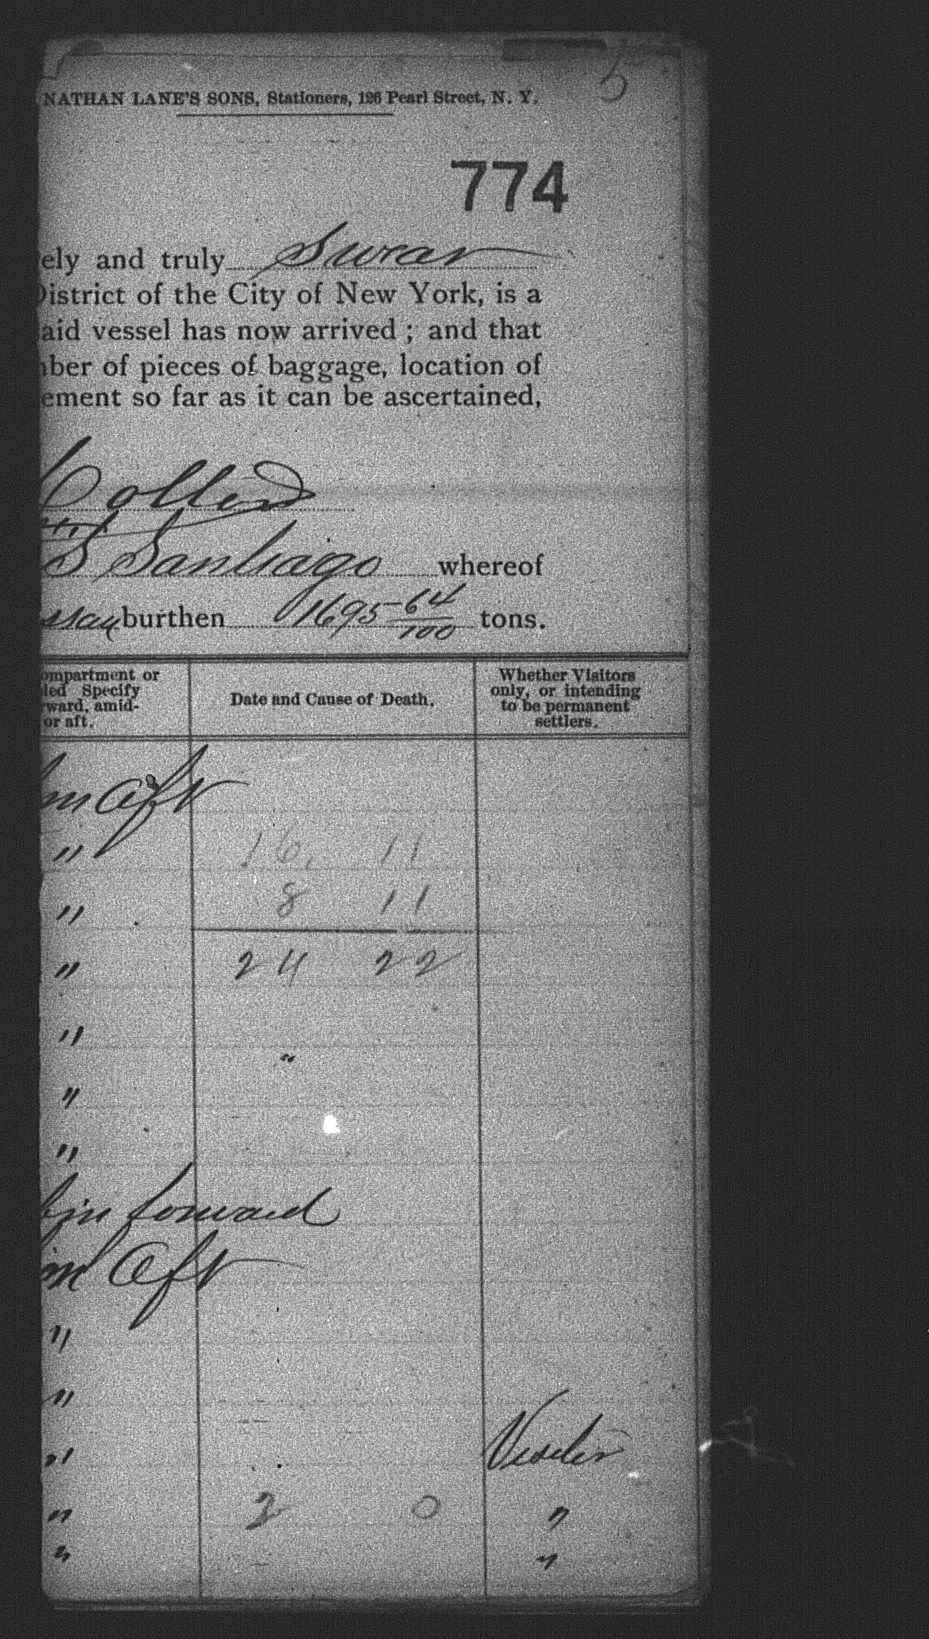 5
NATHAN LANE'S SONS, Stationers, 126 Pearl Street, N. Y.
774
ely and truly Swear
District of the City of New York, is a
aid vessel has now arrived ; and that
ber of pieces of baggage, location of
ement so far as it can be ascertained,
Collins
S Santiago whereof
ssau burthen 1695 64/100 tons.
ompartment or
led Specify
rward, amid-
or aft.
Date and Cause of Death.
Whether Visitors
only, or intending
to be permanent
settlers.
in aft
" 16. 11
" 8 11
" 24 22
"
"
"
bin forward
in Aft
"
"
" Visitor
" 2 0 "
" "